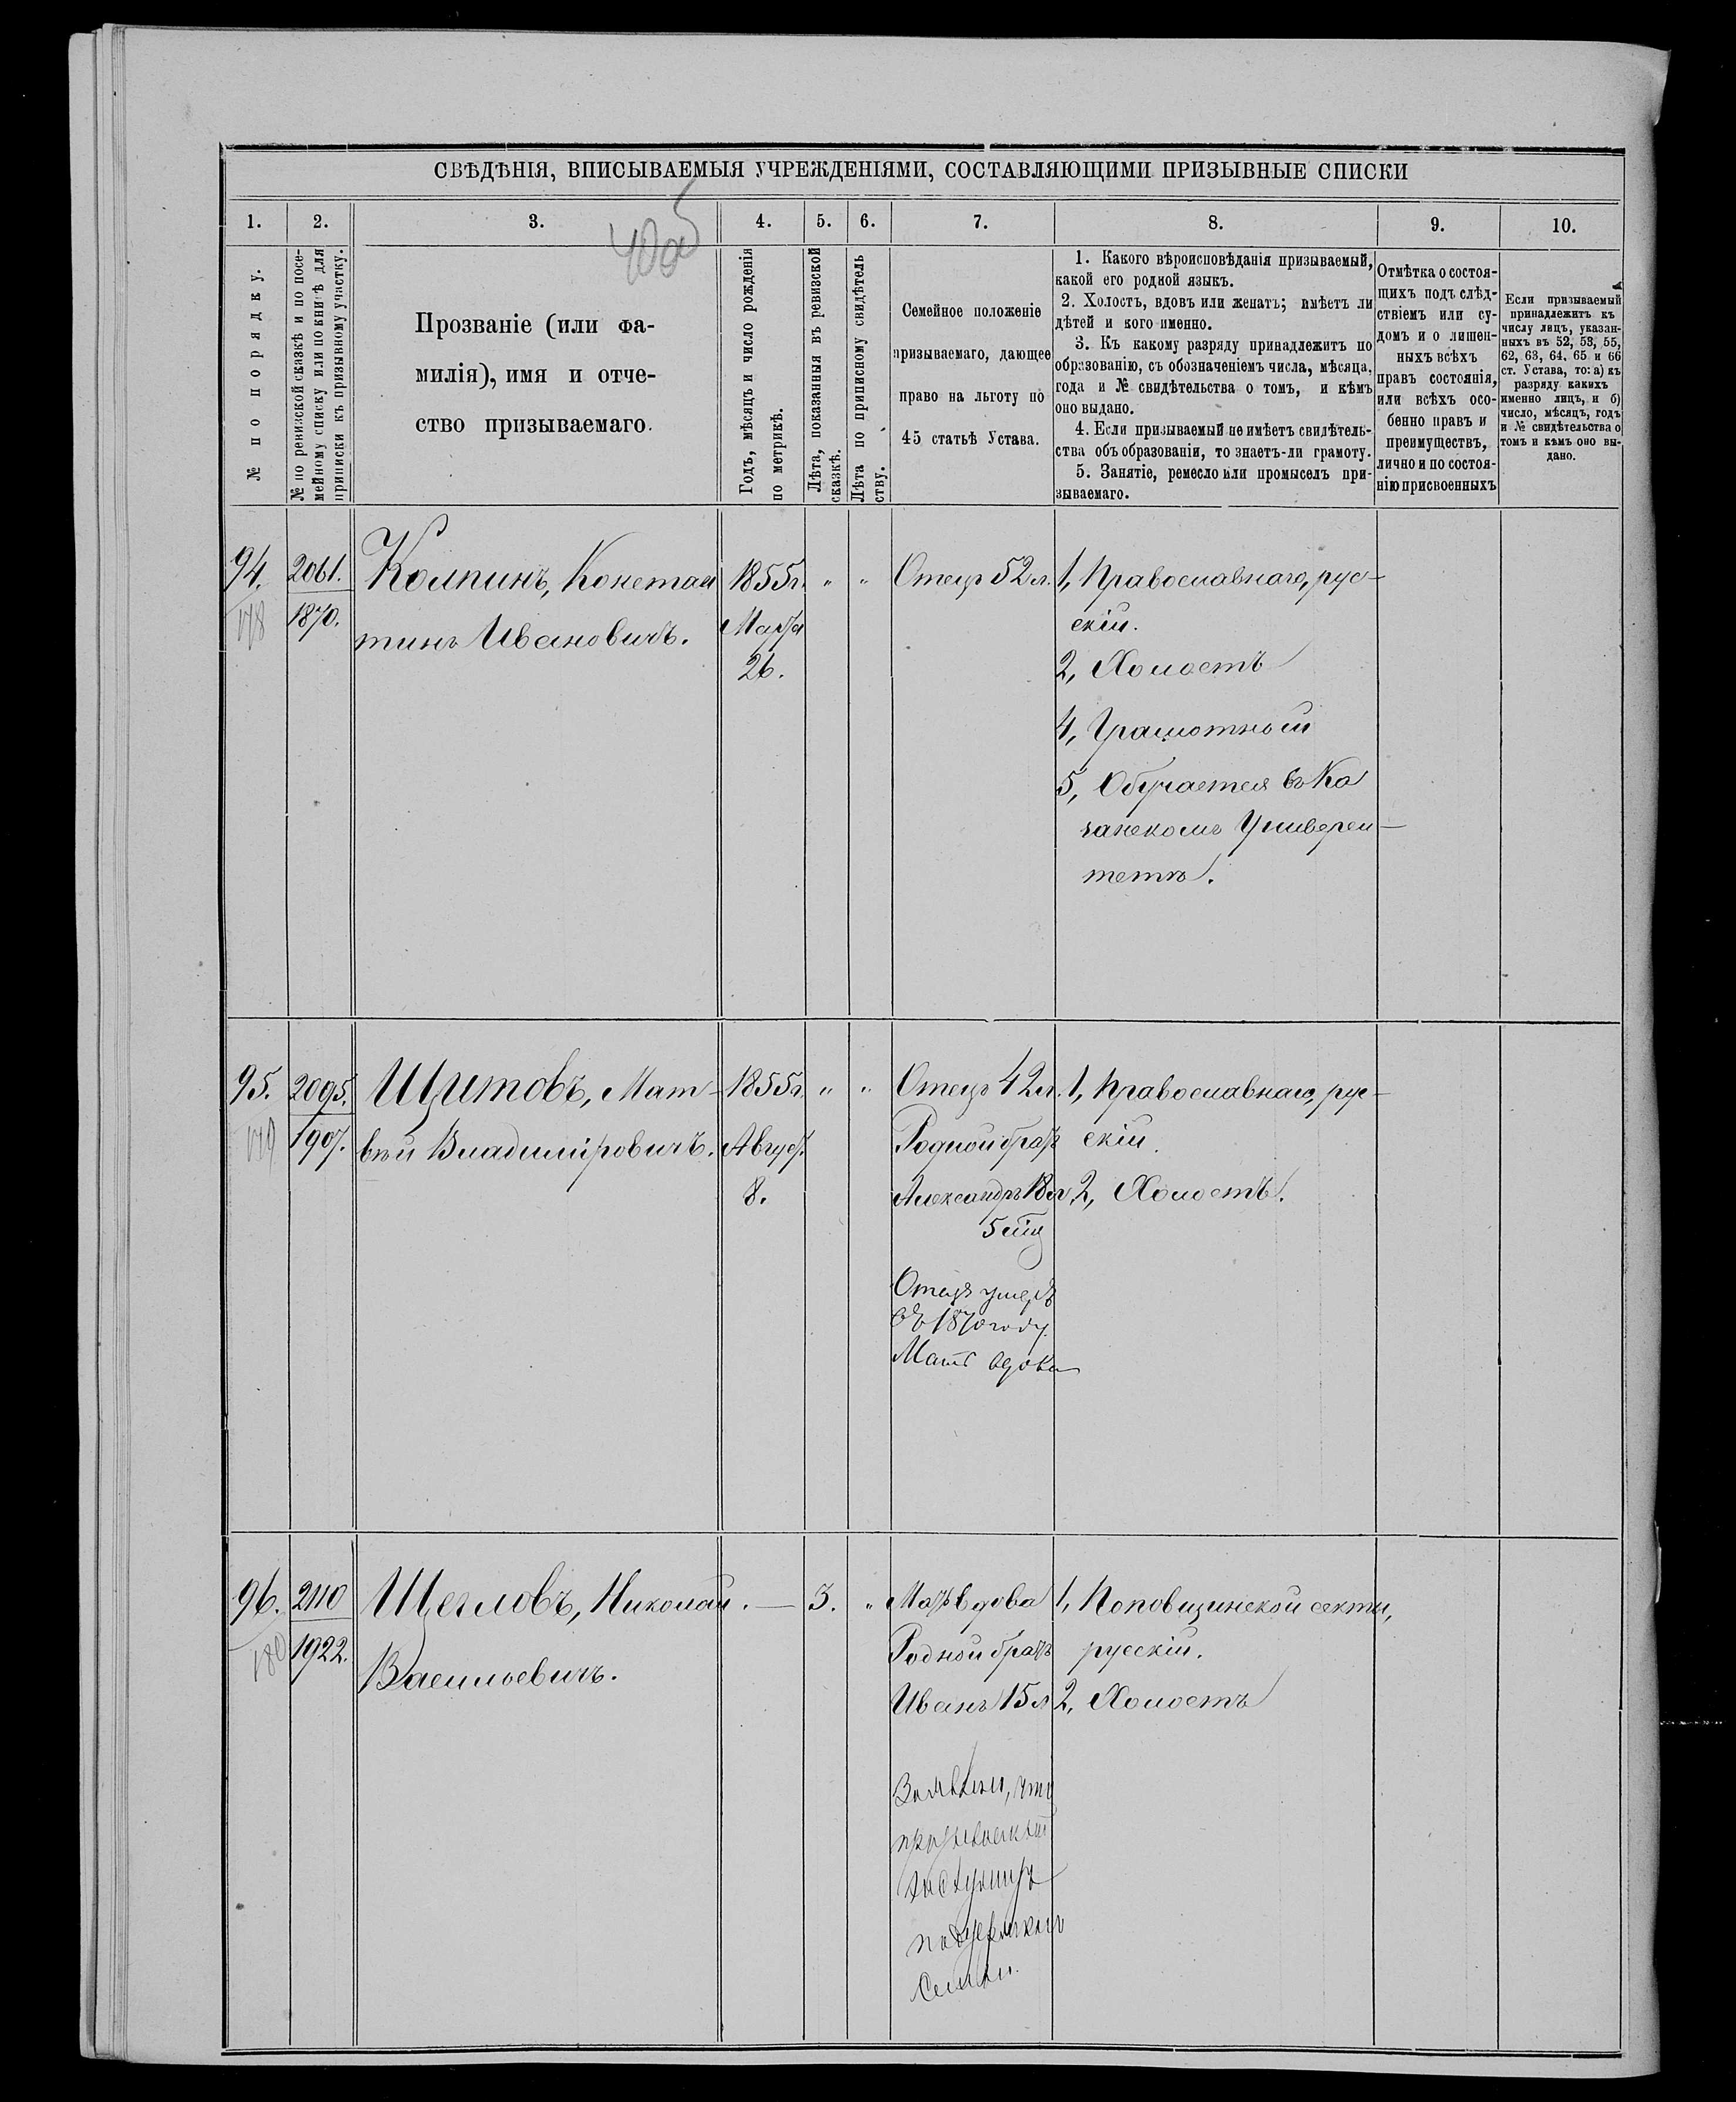 СВѢДѢНІЯ, ВПИСЫВАЕМЫЯ УЧРЕЖДЕНІЯМИ, СОСТАВЛЯЮЩИМИ ПРИЗЫВНЫЕ СПИСКИ
1. 2. 3. 4. 5. 6. 7. 8. 9. 10.
№ по порядку.
№ по ревизской сказкѣ и по посе-
мейному списку или по книгѣ для
приписки къ призывному участку.
Прозваніе (или фа-
милія), имя и отче-
ство призываемаго.
Годъ, мѣсяцъ и число рожденія
по метрикѣ.
Лѣта, показанныя въ ревизской
сказкѣ.
Лѣта по приписному свидѣтель
ству.
Семейное положеніе
призываемаго, дающее
право на льготу по
45 статьѣ Устава.
1. Какого вѣроисповѣданія призываемый,
какой его родной языкъ.
2. Холостъ, вдовъ или женатъ; имѣетъ ли
дѣтей и кого именно.
3. Къ какому разряду принадлежитъ по
образованію, съ обозначеніемъ числа, мѣсяца,
года и № свидѣтельства о томъ, и кѣмъ
оно выдано.
4. Если призываемый не имѣетъ свидѣтель-
ства объ образованіи, то знаетъ-ли грамоту.
5. Занятіе, ремесло или промыселъ при-
зываемаго.
Отмѣтка о состоя-
щихъ подъ слѣд-
ствіемъ или су-
домъ и о лишен-
ныхъ всѣхъ
правъ состоянія,
или всѣхъ осо-
бенно правъ и
преимуществъ,
лично и по состоя-
нію присвоенныхъ
Если призываемый
принадлежитъ къ
числу лицъ, указан-
ныхъ въ 52, 53, 55,
62, 63, 64, 65 и 66
ст. Устава, то: а) къ
разряду какихъ
именно лицъ, и б)
число, мѣсяцъ, годъ
и № свидѣтельства о
томъ и кѣмъ оно вы-
дано.
94.
178
2061.
1870.
Колпинъ, Констан
тинъ Ивановичъ.
1855г.
Марта
26.
" "
Отецъ 52 л.
1, Православнаго, рус-
скій.
2, Холостъ
4, Грамотный
5, Обучается въ Ка
занскомъ Универси-
тетѣ.
95.
179
2095.
1907.
Щитовъ, Мат-
вѣй Владиміровичъ.
1855г.
Август.
8.
" "
Отецъ 42 л.
Родной братъ
Александръ 18 л
5 мѣц
Отецъ умеръ
въ 1870 году.
Мать вдова
1, Православнаго, рус-
скій.
2, Холостъ.
96.
180
2110
1922.
Щегловъ, Николай
Васильевичъ.
. —
3.
"
Мать вдова
Родной братъ
Иванъ 15 л
что
1, Поповщинской секты,
русскій.
2, Холостъ